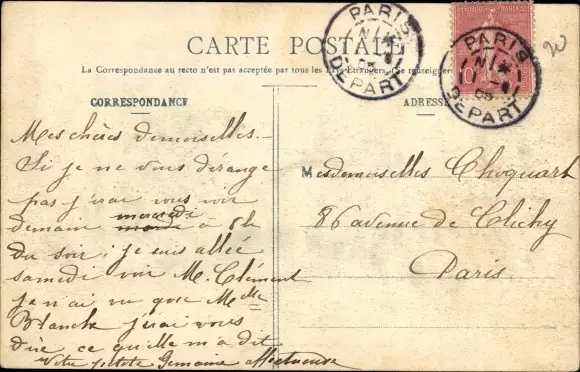 CARTE POSTALE
La Correspondance au recto n'est pas acceptée par tous les Étrangers. (Se renseigner
PARIS
DÉPART
05
PARIS
DÉPART
05
10
CORRESPONDANCE
ADRESSE
Mes chères demoiselles.
Si je ne vous dérange
pas j'irai vous voir
mercredi
demain à 8h
du soir, je suis allée
samedi voir M. Clément
je n'ai vu que Melle
Blanche j'irai vous
dire ce qu'elle m'a dit
Votre petite Germaine affectueuse
Mesdemoiselles Choquart
86 avenue de Clichy
Paris